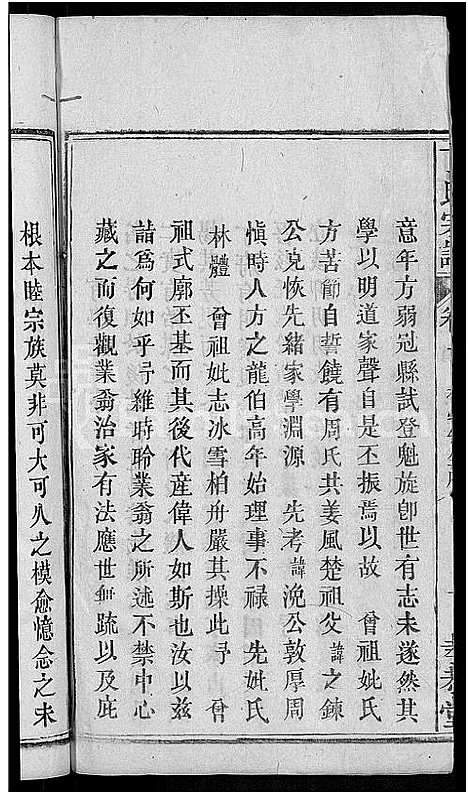 意年方弱冠縣試登魁旋卽世有志未遂然其
學以明道家聲自是丕振焉以故　曾祖妣氏
方苦節自誓饒有周氏共姜風楚祖父諱之鍊
公克恢先緒家學淵源　先考諱浼公敦厚周
愼時人方之龍伯高年始理事不祿　先妣氏
林體　曾祖妣志冰雪柏舟嚴其操此予　曾
祖式廓丕基而其後代産偉人如斯也汝以兹
詰爲何如乎予維時聆業翁之所述不禁中心
藏之而復觀業翁治家有法應世無疏以及庇
根本睦宗族莫非可大可久之模愈憶念之未